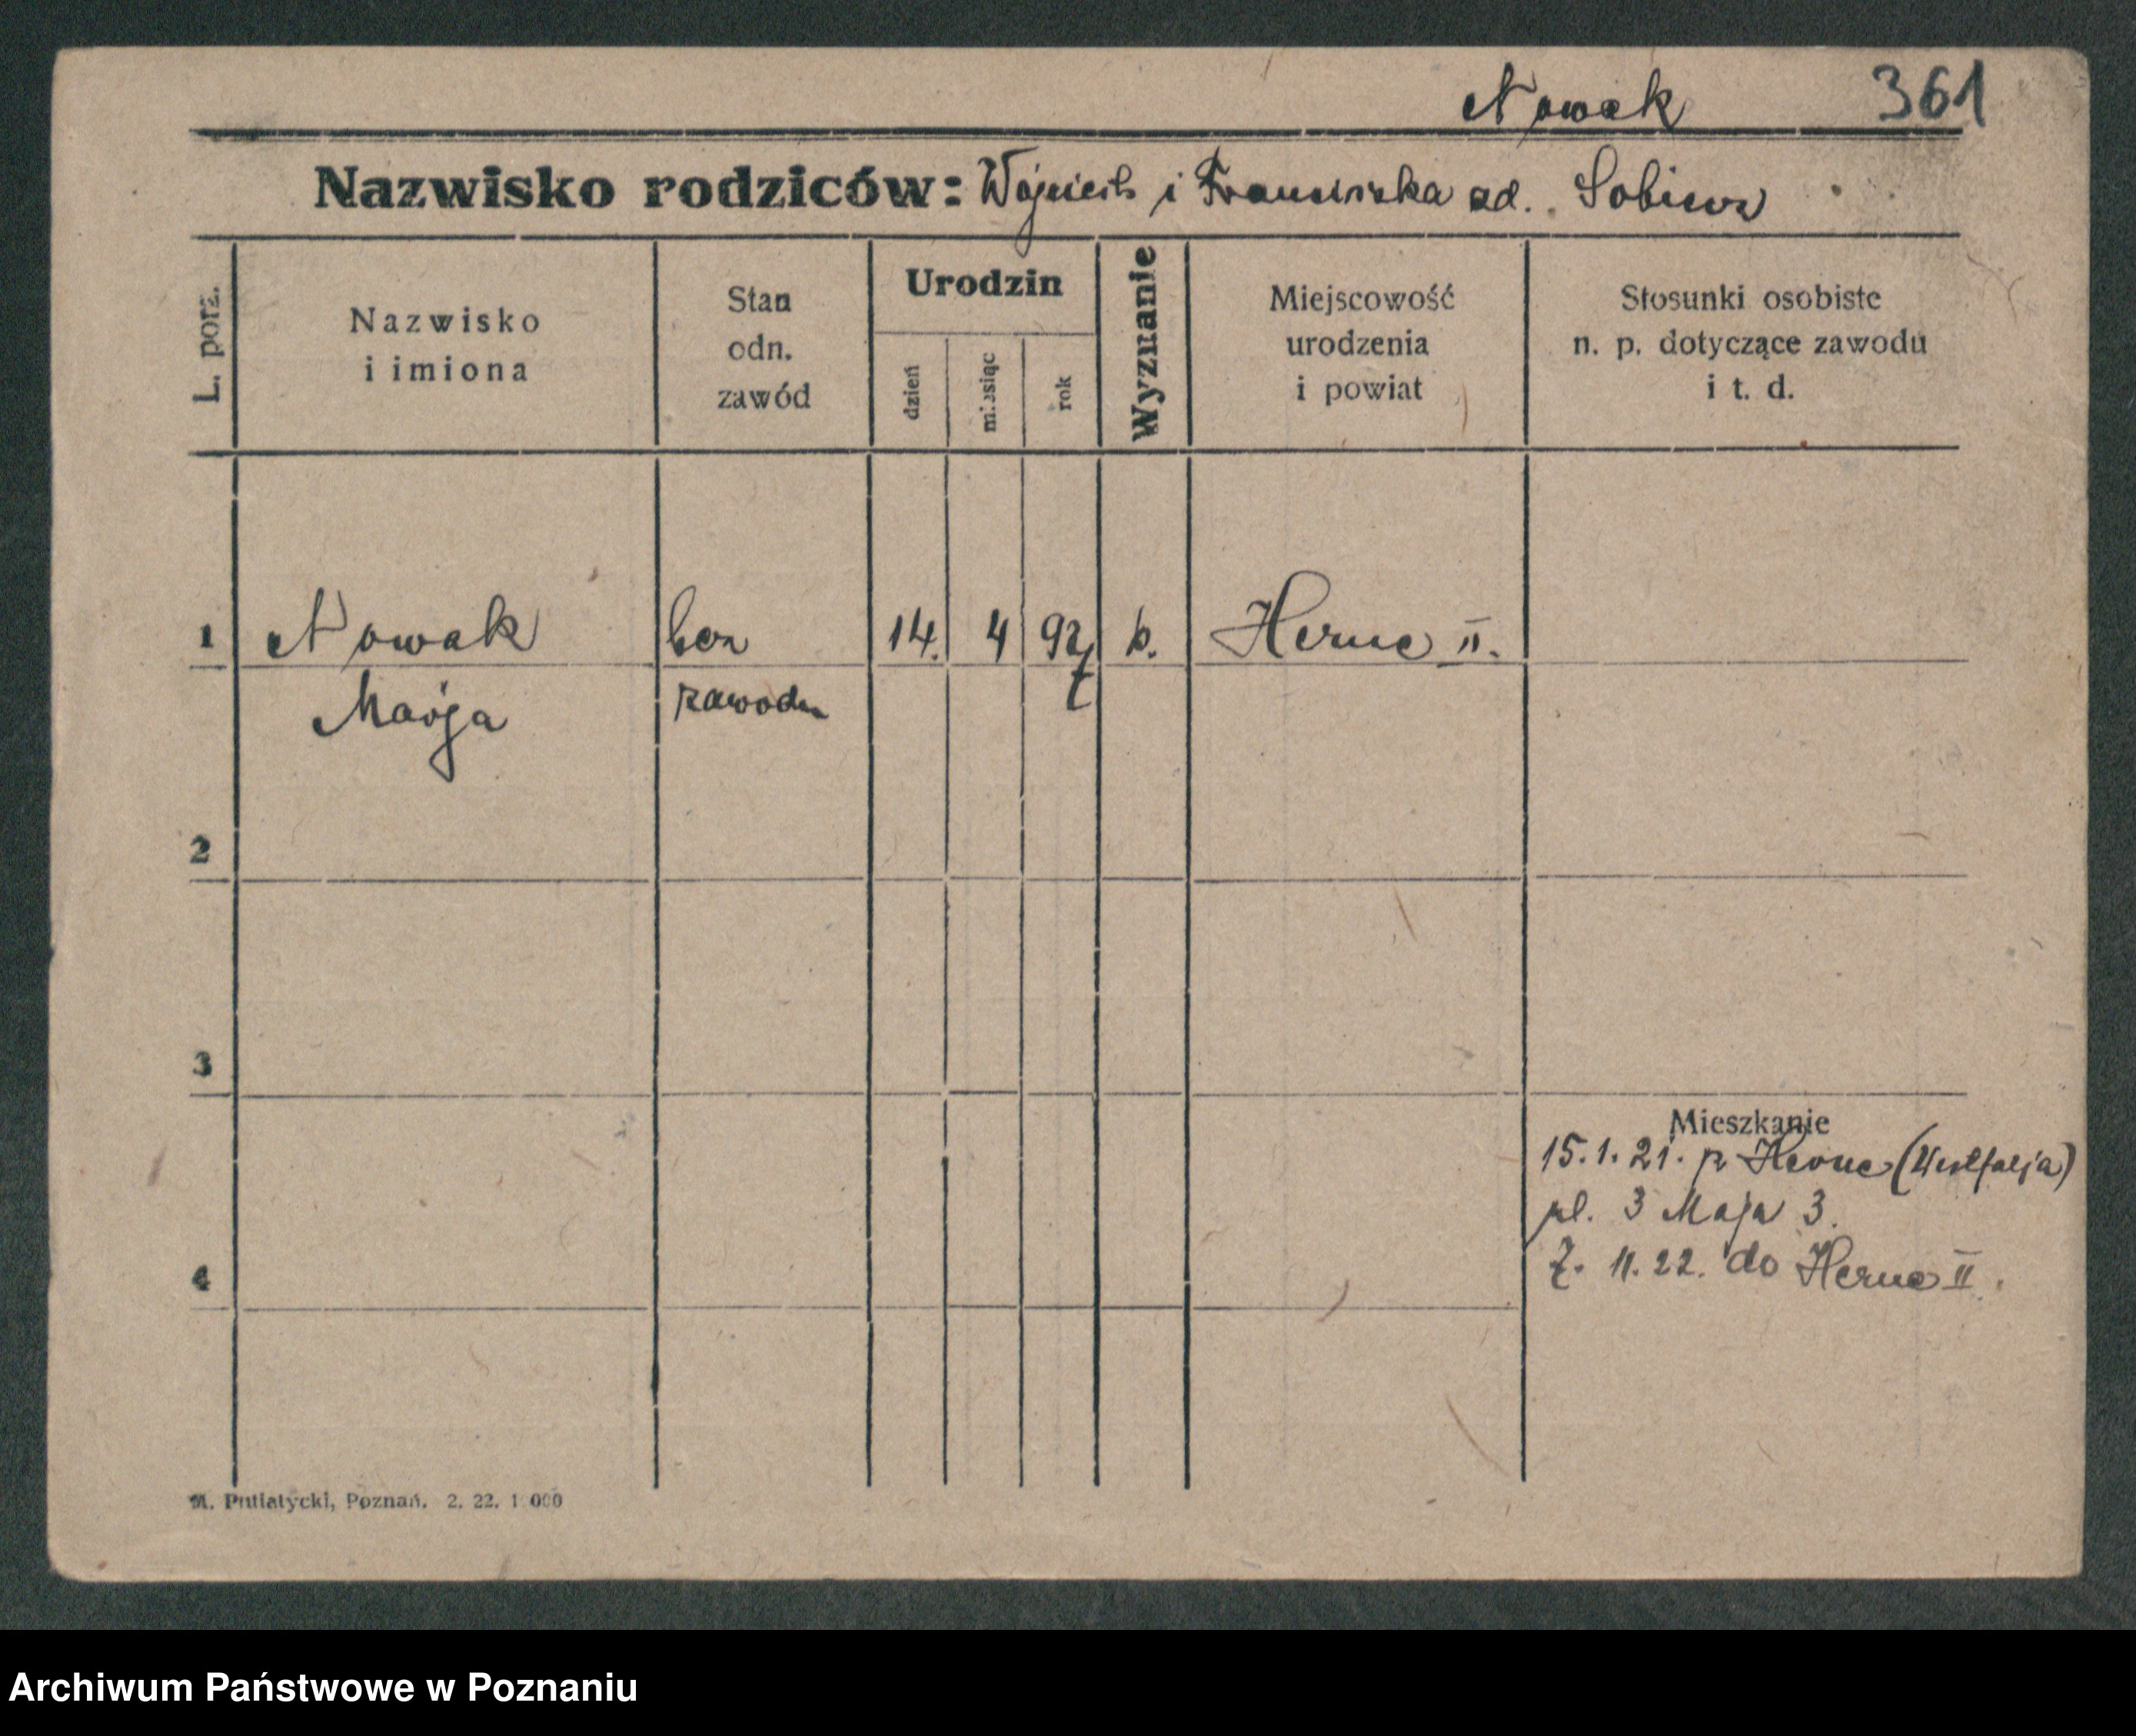 Nowak 361
Nazwisko rodziców: Wojciech i Franciszka zd. Sobierz
L. porz.
Nazwisko
i imiona
Stan
odn.
zawód
Urodzin
dzień
miesiąc
rok
Wyznanie
Miejscowość
urodzenia
i powiat
Stosunki osobiste
n. p. dotyczące zawodu
i t. d.
1 Nowak bez 14. 4 92 k. Herne II.
Marja zawodu
2
3
Mieszkanie
15.1.21. z Herne (Westfalja)
pl. 3 Maja 3.
7. 11. 22. do Herne II.
4
M. Putiatycki, Poznań. 2. 22. 1 000
Archiwum Państwowe w Poznaniu